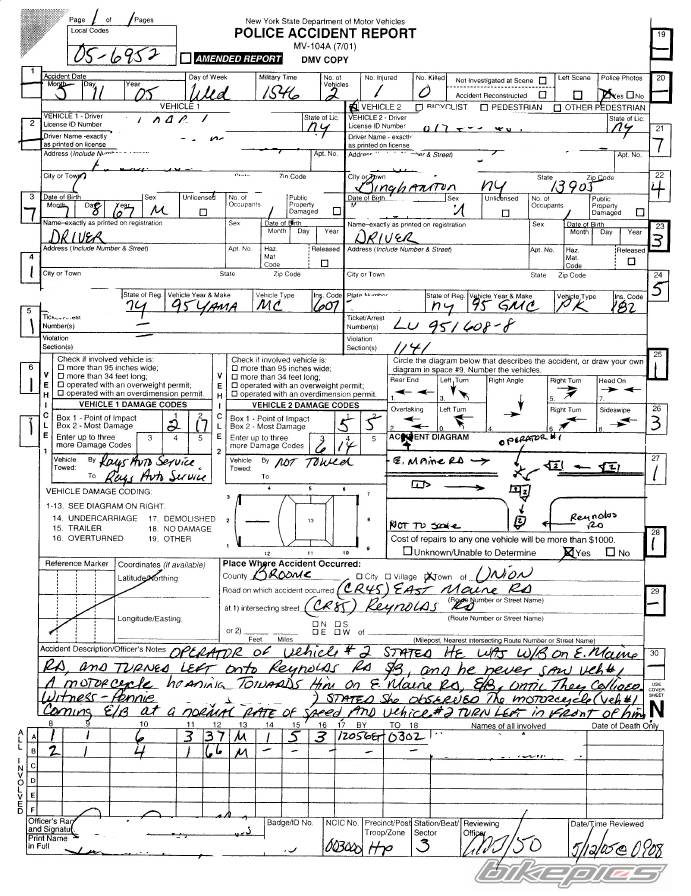 Page 1 of 1 Pages
New York State Department of Motor Vehicles
Local Codes
POLICE ACCIDENT REPORT
05-6952
MV-104A (7/01)
AMENDED REPORT DMV COPY
19
1 Accident Date Day of Week Military Time No. of Vehicles No. Injured No. Killed Not Investigated at Scene Left Scene Police Photos 20
Month Day Year Accident Reconstructed Yes No
5 11 05 Wed 1546 2 1 0
VEHICLE 1 VEHICLE 2 BICYCLIST PEDESTRIAN OTHER PEDESTRIAN
2 VEHICLE 1 - Driver License ID Number State of Lic. NY VEHICLE 2 - Driver License ID Number State of Lic. NY 21
Driver Name -exactly as printed on license Driver Name - exactly as printed on license 7
Address (Include Number & Street) Apt. No. Address & Street) Apt. No.
City or Town Zip Code City or Town State Zip Code 22
Binghamton NY 13905 4
3 Date of Birth Sex Unlicensed No. of Occupants Public Property Damaged Date of Birth Sex Unlicensed No. of Occupants Public Property Damaged
7 Month Day Year 8 67 M 1 1
Name-exactly as printed on registration Sex Date of Birth Month Day Year Name-exactly as printed on registration Sex Date of Birth Month Day Year 23
DRIVER DRIVER 3
4 Address (Include Number & Street) Apt. No. Haz. Mat. Code Released Address (Include Number & Street) Apt. No. Haz. Mat. Code Released
1 City or Town State Zip Code City or Town State Zip Code 24
5
State of Reg. Vehicle Year & Make Vehicle Type Ins. Code Plate Number State of Reg. Vehicle Year & Make Vehicle Type Ins. Code
NY 95 YAMA MC 601 NY 95 GMC PK 182
5 Number(s) Ticket/Arrest Number(s) LU 951608-8
1 Violation Section(s) Violation Section(s) 1141
6 Check if involved vehicle is: Check if involved vehicle is: Circle the diagram below that describes the accident, or draw your own diagram in space #9. Number the vehicles. 25
1 more than 95 inches wide; more than 95 inches wide; 1
more than 34 feet long; more than 34 feet long; Rear End Left Turn Right Angle Right Turn Head On
operated with an overweight permit; operated with an overweight permit; 1. 3. 5. 7.
operated with an overdimension permit. operated with an overdimension permit. Overtaking Left Turn Right Turn Sideswipe 26
7 VEHICLE 1 DAMAGE CODES VEHICLE 2 DAMAGE CODES 3
1 Box 1 - Point of Impact 1 2 Box 1 - Point of Impact 1 2
Box 2 - Most Damage 2 17 Box 2 - Most Damage 5 5
Enter up to three more Damage Codes 3 4 5 Enter up to three more Damage Codes 3 4 5 ACCIDENT DIAGRAM OPERATOR #1
6 14
VEHICLE 1 VEHICLE 2
Vehicle Towed: By Rays Auto Service Vehicle Towed: By Not Towed E. Maine RD 27
To Rays Auto Service To 1
VEHICLE DAMAGE CODING:
1-13. SEE DIAGRAM ON RIGHT.
14. UNDERCARRIAGE 17. DEMOLISHED
15. TRAILER 18. NO DAMAGE
16. OVERTURNED 19. OTHER
Not to Scale Reynolds RD
Cost of repairs to any one vehicle will be more than $1000. 28
Unknown/Unable to Determine Yes No 1
Reference Marker Coordinates (if available) Place Where Accident Occurred:
Latitude/Northing: County BROOME City Village Town of UNION
Road on which accident occurred (CR45) EAST Maine RD 29
(Route Number or Street Name)
Longitude/Easting: at 1) intersecting street (CR85) Reynolds RD
(Route Number or Street Name)
or 2) Feet Miles N S E W of
(Milepost, Nearest Intersecting Route Number or Street Name)
Accident Description/Officer's Notes OPERATOR OF Vehicle #2 STATED HE WAS W/B on E. Maine 30
RD, and TURNED LEFT onto Reynolds RD S/B, and he never saw veh#1
A motorcycle heading TOWARDS Him on E. Maine RD, E/B, until They Collided USE COVER SHEET
Witness- Pennie STATED She OBSERVED The motorcycle (veh#1 N
Coming E/B at a NORMAL RATE of Speed and vehicle #2 TURN LEFT in FRONT of him.
8 9 10 11 12 13 14 15 16 17 BY TO 18 Names of all involved Date of Death Only
ALL INVOLVED
A 1 1 6 3 37 M 1 5 3 0302
B 2 1 4 1 66 M - - - - -
C
D
E
F
Officer's Rank and Signature Badge/ID No. NCIC No. Precinct/Post Troop/Zone Station/Beat/Sector Reviewing Officer Date/Time Reviewed
Print Name in Full 003000 HP 3 5/12/05 @ 0908
bikepics